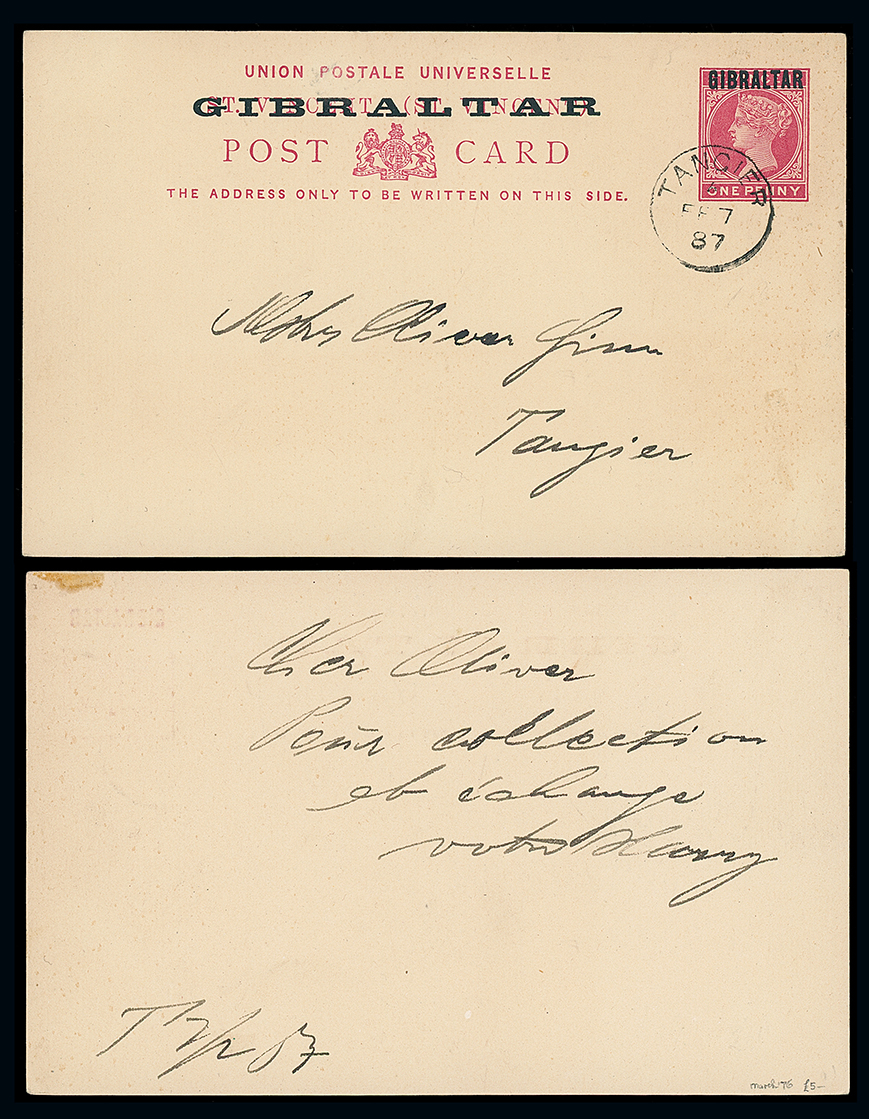 UNION POSTALE UNIVERSELLE
GIBRALTAR
GIBRALTAR
POST CARD
THE ADDRESS ONLY TO BE WRITTEN ON THIS SIDE.
ONE PENNY
TANGIER
FE 7
87
Oliver
Tangier
Cher Oliver
Pour collection
et échange
votre Harry
T 7/2 87
march '76 £5-